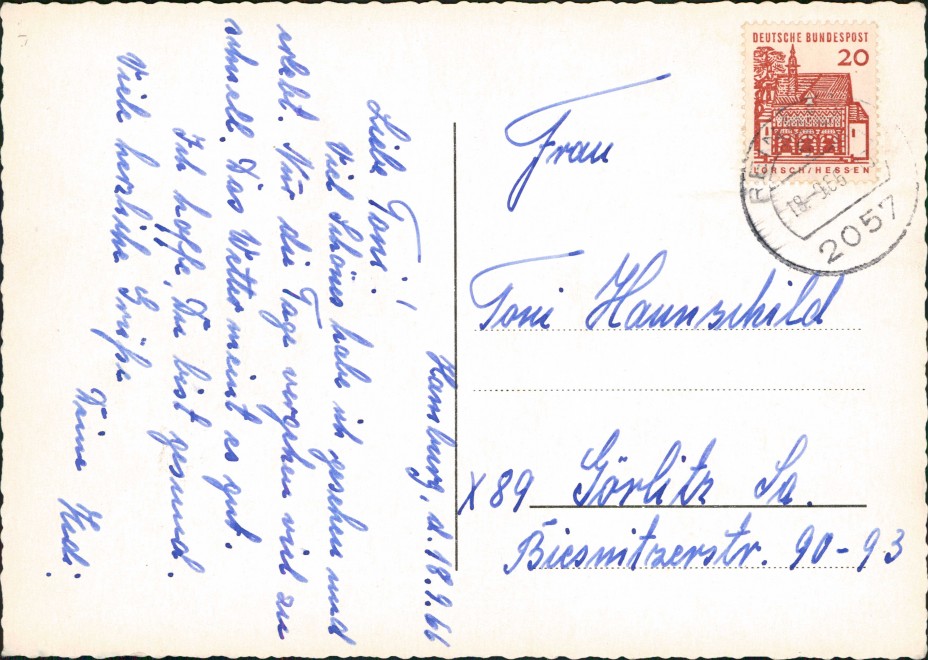 Hamburg, d. 18.9.66
Liebe Toni!
Viel Schönes habe ich gesehen und
erlebt. Nur die Tage vergehen viel zu
schnell. Das Wetter meint es gut.
Ich hoffe, Du bist gesund.
Viele herzliche Grüße
Deine Hedi.
DEUTSCHE BUNDESPOST
20
LORSCH/HESSEN
2057
Frau
Toni Haunschild
X89 Görlitz Sa.
Biesnitzerstr. 90-93